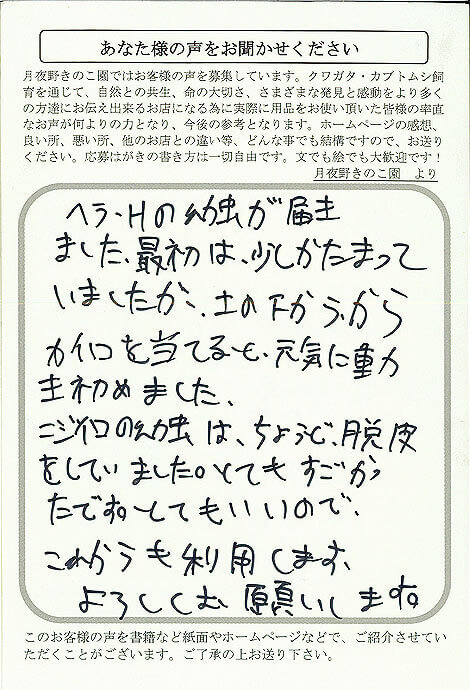 あなた様の声をお聞かせください
月夜野きのこ園ではお客様の声を募集しています。クワガタ・カブトムシ飼
育を通じて、自然との共生、命の大切さ、さまざまな発見と感動をより多く
の方達にお伝え出来るお店になる為に実際に用品をお使い頂いた皆様の率直
なお声が何よりの力となり、今後の参考となります。ホームページの感想、
良い所、悪い所、他のお店との違い等、どんな事でも結構ですので、お送り
ください。応募はがきの書き方は一切自由です。文でも絵でも大歓迎です！
月夜野きのこ園 より
ヘラ・Hの幼虫が届き
ました、最初は、少しかたまって
いましたが、土の下から、から
カイロを当てると、元気に動
き初めました、
ニジイロの幼虫は、ちょうど、脱皮
をしていました。とてもすごかっ
たです。とてもいいので、
これからも利用します、
よろしくお願いします。
このお客様の声を書籍など紙面やホームページなどで、ご紹介させてい
ただくことがございます。ご了承の上お送り下さい。